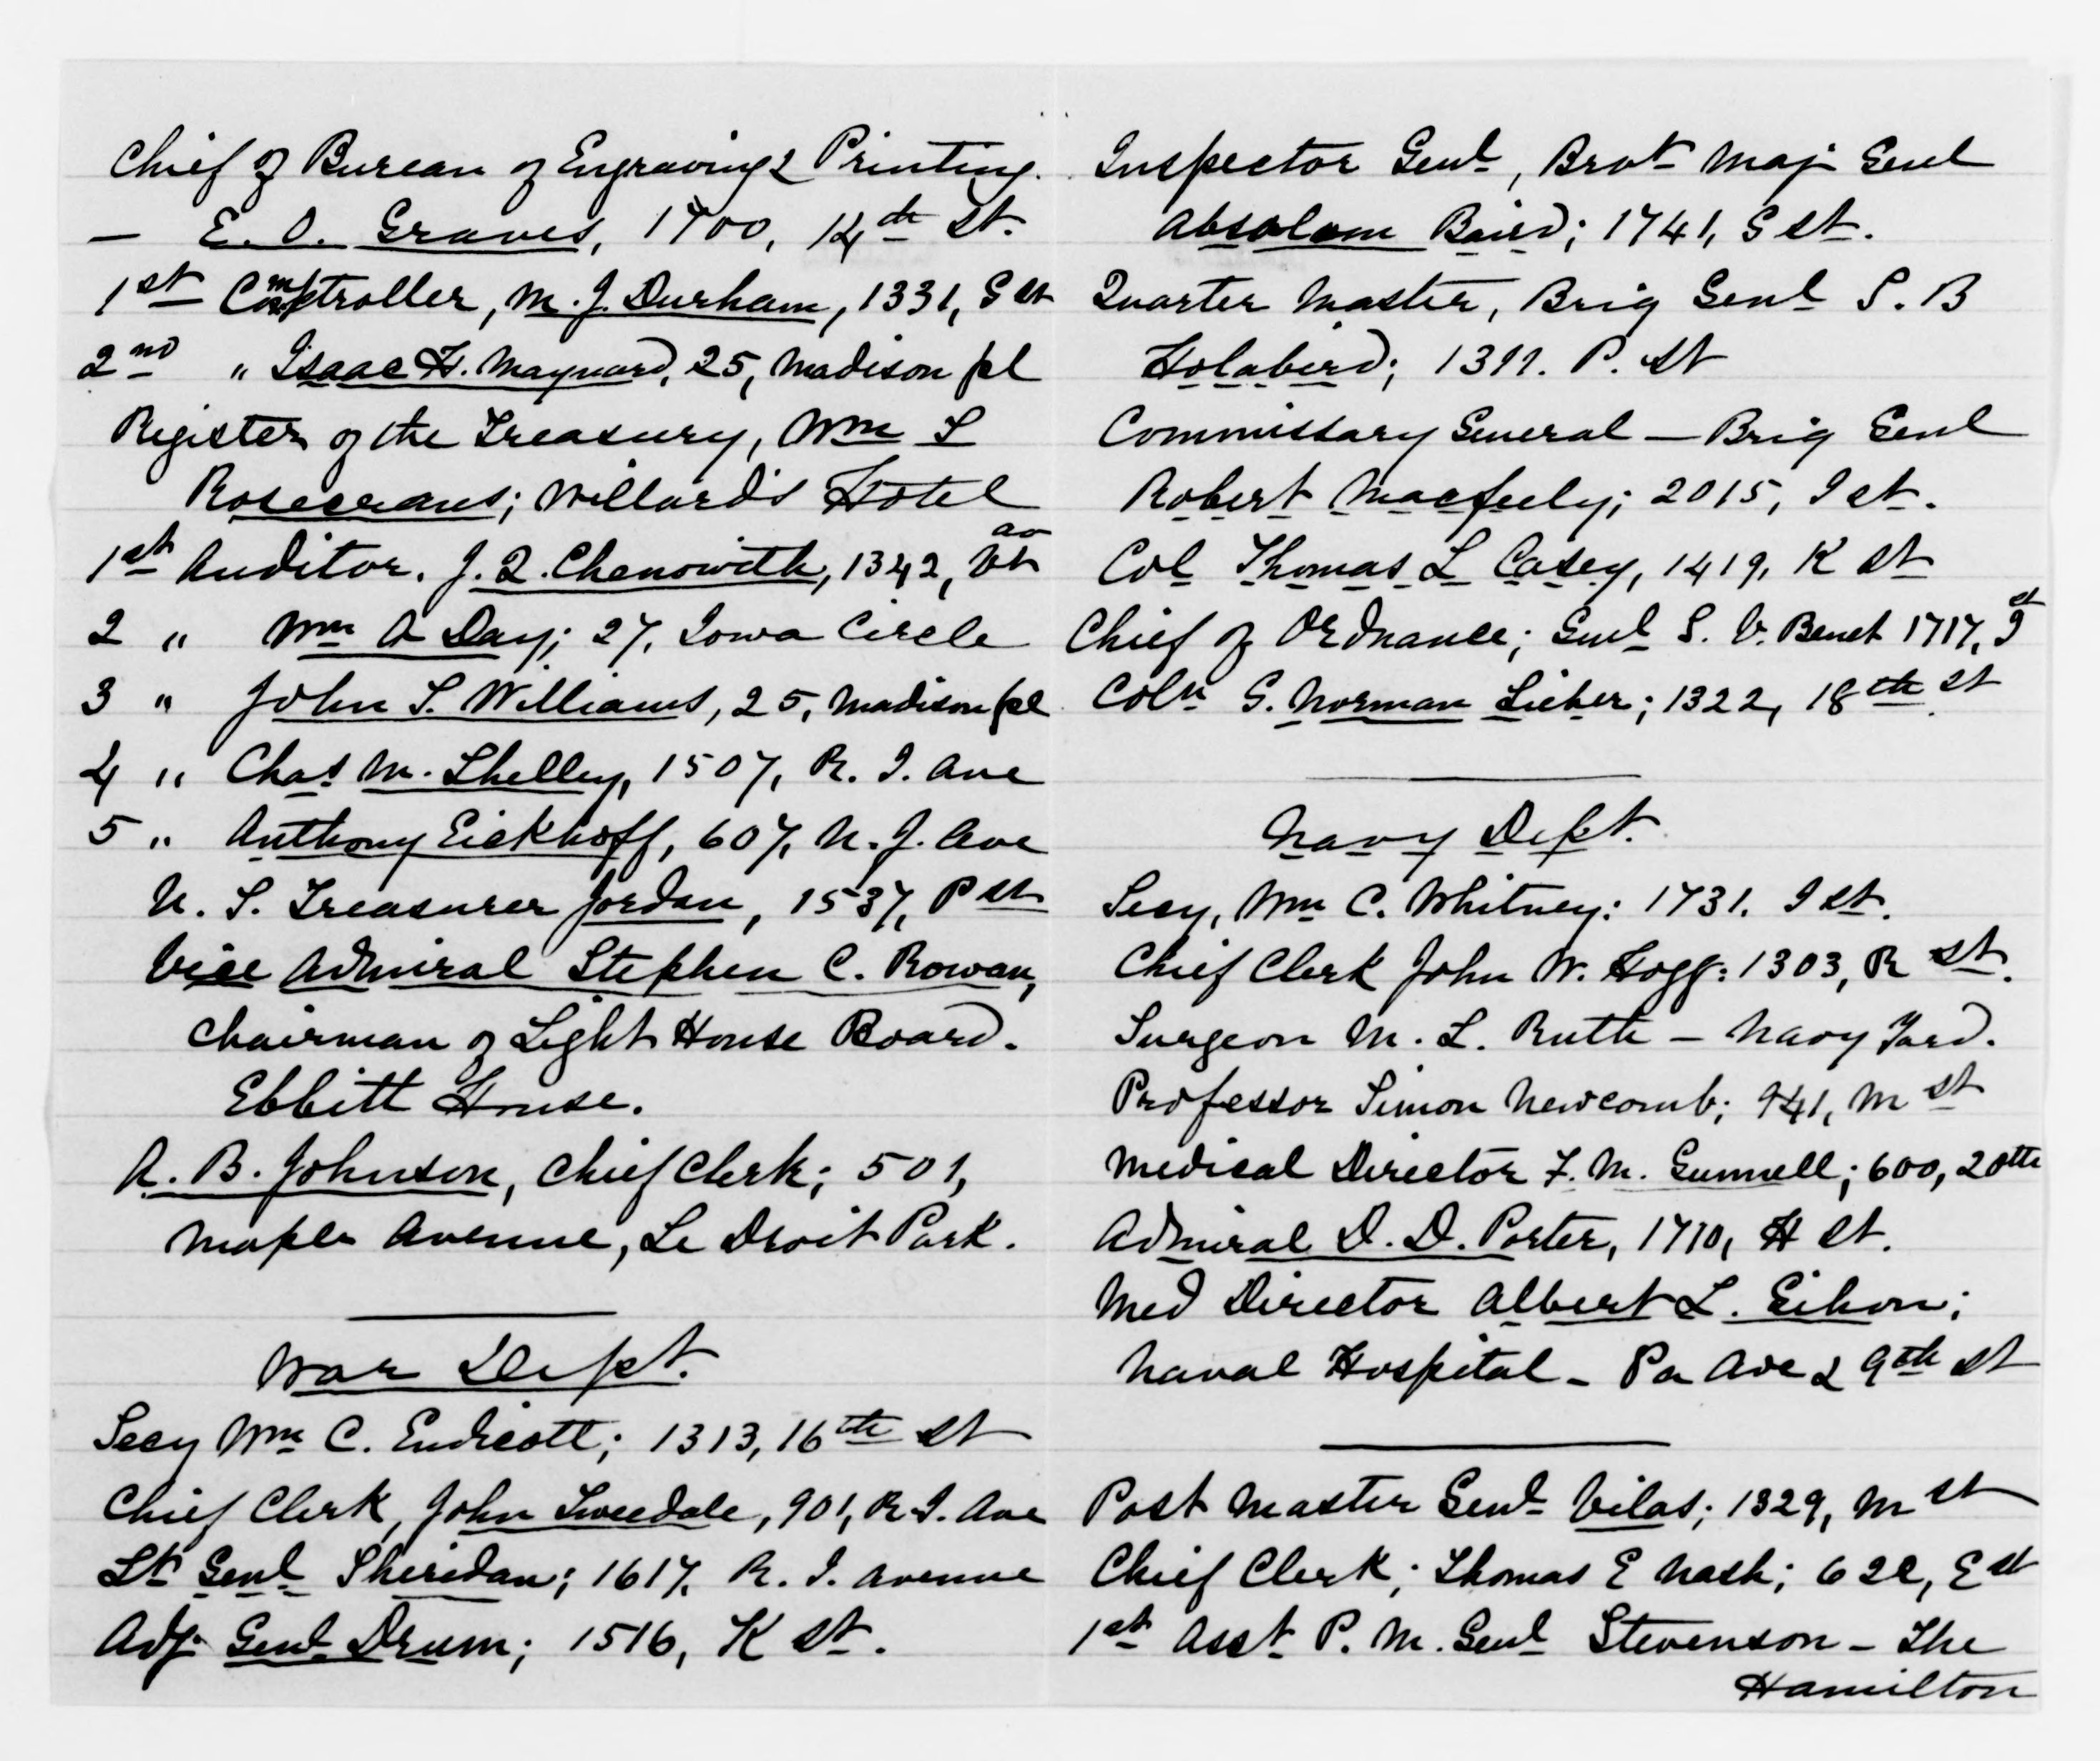 Chief of Bureau of Engraving & Printing.
— E. O. Graves, 1700, 14th St.
1st Comptroller, M. J. Durham, 1331, G St
2nd " Isaac H. Maynard, 25, Madison pl
Register of the Treasury, Wm S
Rosecrans; Willard's Hotel
1st Auditor. J. Q. Chenowith, 1342, Vt av
2 " Wm A Day; 27, Iowa Circle
3 " John S. Williams, 25, Madison pl
4 " Chas M. Shelley, 1507, R. I. Ave
5 " Anthony Eickhoff, 607, N. J. Ave
U. S. Treasurer Jordan, 1537, P St
Vice Admiral Stephen C. Rowan,
Chairman of Light House Board.
Ebbitt House.
A. B. Johnson, Chief Clerk; 501,
Maple Avenue, Le Droit Park.
War Dept.
Secy Wm C. Endicott; 1313, 16th St
Chief Clerk, John Tweedale, 901, R. I. Ave
Lt Genl Sheridan; 1617, R. I. Avenue
Adj. Genl Drum; 1516, K St.
Inspector Genl, Brvt Maj Genl
Absalom Baird; 1741, G St.
Quarter Master, Brig Genl S. B
Holabird; 1311. P. St
Commissary General — Brig Genl
Robert Macfeely; 2015, I St.
Col Thomas L Casey, 1419, K St
Chief of Ordnance; Genl S. V. Benet 1717, I st
Coln G. Norman Lieber; 1322, 18th St
Navy Dept.
Secy, Wm C. Whitney: 1731. I St.
Chief Clerk John W. Hogg: 1303, R St.
Surgeon M. L. Ruth — Navy Yard.
Professor Simon Newcomb; 941, M St
Medical Director F. M. Gunnell; 600, 20th
Admiral D. D. Porter, 1710, H St.
Med Director Albert L. Gihon;
Naval Hospital — Pa Ave & 9th St
Post Master Genl Vilas; 1329, M St
Chief Clerk; Thomas E Nash; 622, E St
1st Asst P. M. Genl Stevenson — The
Hamilton